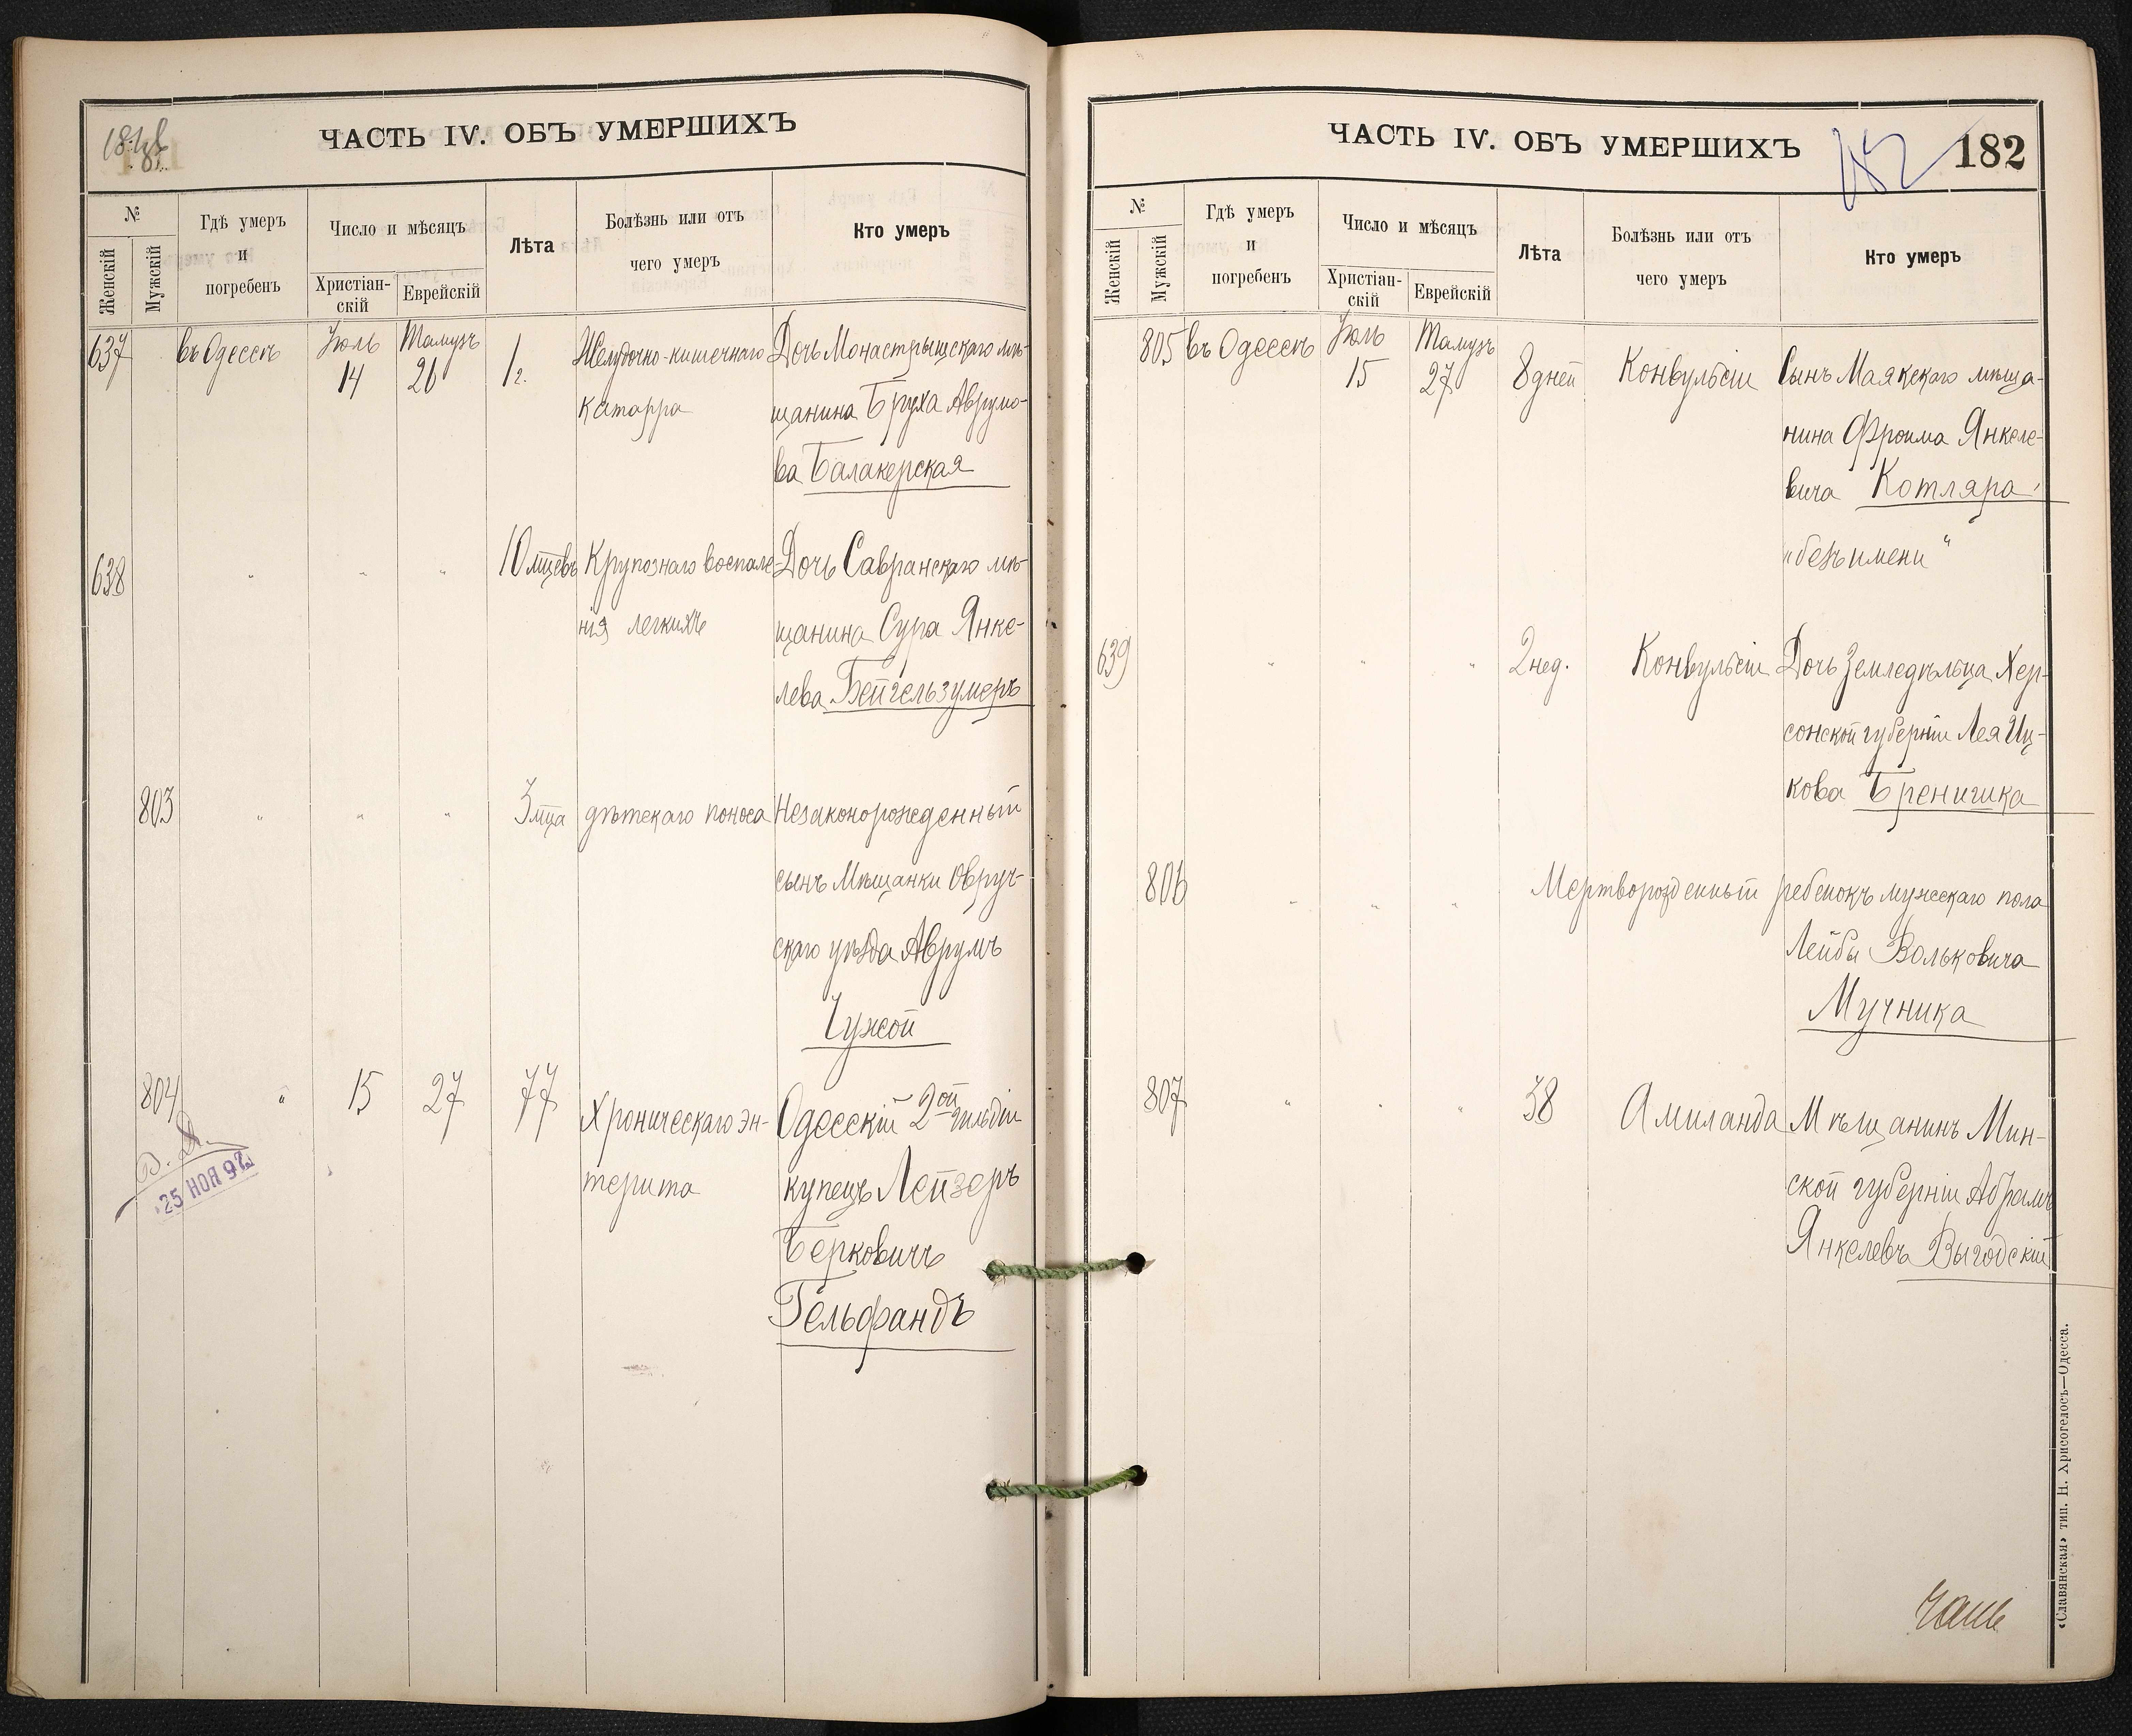 ЧАСТЬ IV. ОБЪ УМЕРШИХЪ
№
Женскій
Мужскій
Гдѣ умеръ
и
погребенъ
Число и мѣсяцъ
Христіан-
скій
Еврейскій
Лѣта
Болѣзнь или отъ
чего умеръ
Кто умеръ
637 въ Одессѣ Іюль 14 Тамузъ 26 1 г. Желудочно-кишечнаго Дочь Монастрыщскаго мѣ-
катарра щанина Бруха Аврумо-
ва Балакерская
638 " " " 10 мцевъ Крупознаго воспале- Дочь Савранскаго мѣ-
нія легкихъ щанина Сура Янке-
лева Бейгельзумеръ
803 " " " 3 мца дѣтскаго поноса Незаконорожденный
сынъ Мѣщанки Овруч-
скаго уѣзда Аврумъ
Чужой
804 " 15 27 77 Хроническаго эн- Одесскій 2ой гильдіи
терита купецъ Лейзеръ
Берковичъ
Гельфандъ
25 НОЯ 92
ЧАСТЬ IV. ОБЪ УМЕРШИХЪ
182
182
№
Женскій
Мужскій
Гдѣ умеръ
и
погребенъ
Число и мѣсяцъ
Христіан-
скій
Еврейскій
Лѣта
Болѣзнь или отъ
чего умеръ
Кто умеръ
805 въ Одессѣ Іюль 15 Тамузъ 27 8 дней Конвульсіи Сынъ Маякскаго мѣща-
нина Фроима Янкеле-
вича Котляра
"безъ имени"
639 " " " 2 нед. Конвульсіи Дочь Земледѣльца Хер-
сонской губерніи Лея Иц-
кова Бренишка
806 " " " Мертворожденный ребенокъ мужескаго пола
Лейбы Вольковича
Мучника
807 " " " 38 Амилаида Мѣщанинъ Мин-
ской губерніи Абрамъ
Янкелевъ Выгодскій
«Славянская» тип. Н. Хрисогелосъ—Одесса.